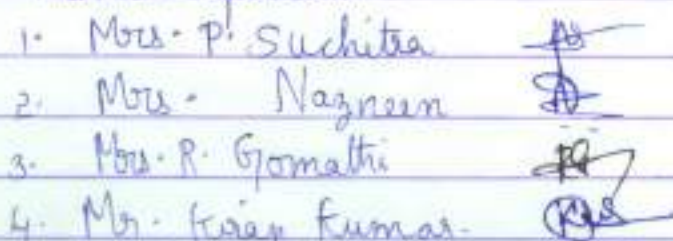 1. Mrs. P. Suchitra
2. Mrs. Nazneen
3. Mrs. R. Gomathi
4. Mr. Kiran Kumar.